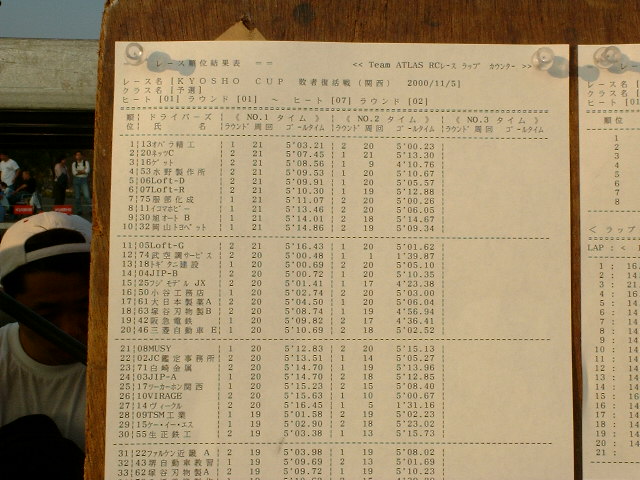 レース順位結果表 == << Team ATLAS RCレース ラップ カウンター >>
レース名 [KYOSHO CUP 敗者復活戦(関西) 2000/11/5]
クラス名 [予選]
ヒート [01] ラウンド [01] ～ ヒート [07] ラウンド [02]
順 ドライバーズ 《 NO.1 タイム 》 《 NO.2 タイム 》 《 NO.3 タイム 》
位 氏 名 ラウンド 周回 ゴールタイム ラウンド 周回 ゴールタイム ラウンド 周回 ゴールタイム
1 13オバラ精工 1 21 5'03.21 2 20 5'00.23
2 20ネッツC 2 21 5'07.45 1 21 5'13.30
3 16ゲット 2 21 5'08.56 1 9 4'10.76
4 53水野製作所 2 21 5'09.53 1 20 5'10.67
5 06Loft-D 2 21 5'09.91 1 20 5'05.57
6 07Loft-R 2 21 5'10.30 1 19 5'12.88
7 75服部化成 1 21 5'11.07 2 20 5'00.26
8 11イコマホビー 1 21 5'13.46 2 20 5'06.05
9 30旭ゲート B 1 21 5'14.01 2 18 5'14.67
10 32岡山トヨペット 1 21 5'14.86 2 19 5'09.34
11 05Loft-G 2 21 5'16.43 1 20 5'01.62
12 74武空調サービス 2 20 5'00.48 1 1 1'39.87
13 18トギタニ建設 1 20 5'00.69 2 20 5'05.10
14 04JIP-B 2 20 5'00.72 1 20 5'10.35
15 25フジモデル JX 2 20 5'01.41 1 17 4'23.38
16 50小谷工務店 1 20 5'02.74 2 20 5'03.00
17 61大日本製薬A 2 20 5'04.50 1 20 5'06.04
18 63塚谷刃物製B 2 20 5'08.74 1 19 4'56.94
19 42阪急電鉄 1 20 5'09.82 2 17 4'36.41
20 46三菱自動車 E 1 20 5'10.69 2 18 5'02.52
21 08MUSY 1 20 5'12.83 2 20 5'15.13
22 02JC鑑定事務所 2 20 5'13.51 1 14 5'05.27
23 71白崎金属 2 20 5'14.70 1 19 5'13.96
24 03JIP-A 1 20 5'14.70 2 18 5'12.85
25 17リーカーホン関西 1 20 5'15.23 2 15 5'08.40
26 10VIRAGE 2 20 5'15.63 1 10 5'00.67
27 14ヴィークル 2 20 5'16.45 1 5 1'31.16
28 09TSM工業 1 19 5'01.58 2 19 5'02.23
29 15ケー・イー・エス 1 19 5'02.90 2 18 5'23.02
30 55生正鉄工 2 19 5'03.38 1 13 5'15.73
31 22ファルケン近畿 A 2 19 5'03.98 1 19 5'08.02
32 43堺自動車教習 1 19 5'09.69 2 13 5'01.69
33 62塚谷刃物製A 2 19 5'09.72 1 19 5'10.23
レース名
クラス名
ヒート [01
順位
1
2
3
4
5
6
7
8
< ラップ
LAP : <
1 : 16.
2 : 14.
3 : 21.